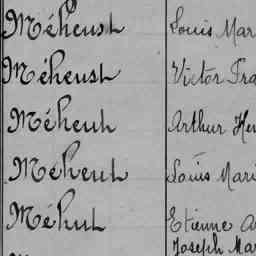 Méheust Louis Mar
Méheust Victor Fra
Méheut Arthur Hen
Méheut Louis Mari
Méhut Etienne A
Joseph Mar